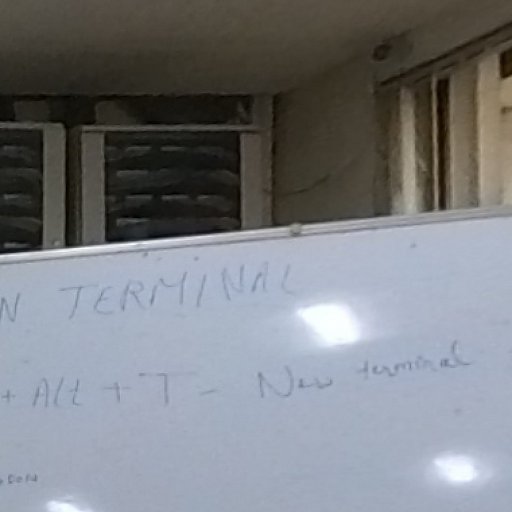 N TERMINAL
+ Alt + T - New terminal